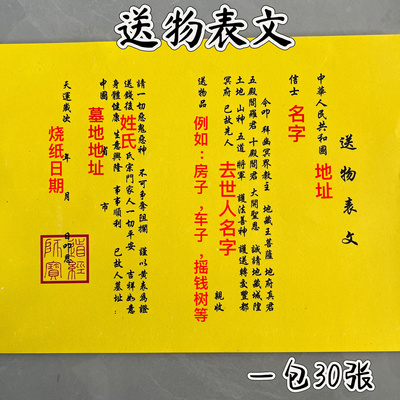 送物表文
送物表文
中華人民共和國 地址
信士 名字
今叩 拜幽冥界教主 地藏王菩薩 地府真君
五殿閻羅君 十殿閻君 大開聖恩 誠請地藏城隍
土地 山神 五道 將軍 護法善神 護送轉交豐都
冥府 已故先人 去世人名字 親收
送物品 例如：房子，车子，摇钱树等
請一切惡鬼惡神 不可爭奪阻攔 謹以黃表為證
送錢後 姓氏 氏宗門家人一切平安 吉祥如意
身體健康 生意興隆 事事順利 已故人墓址：
中國 省 市
墓地地址
天運歲次 年 月 日叩
烧纸日期
道經師寶
一包30张